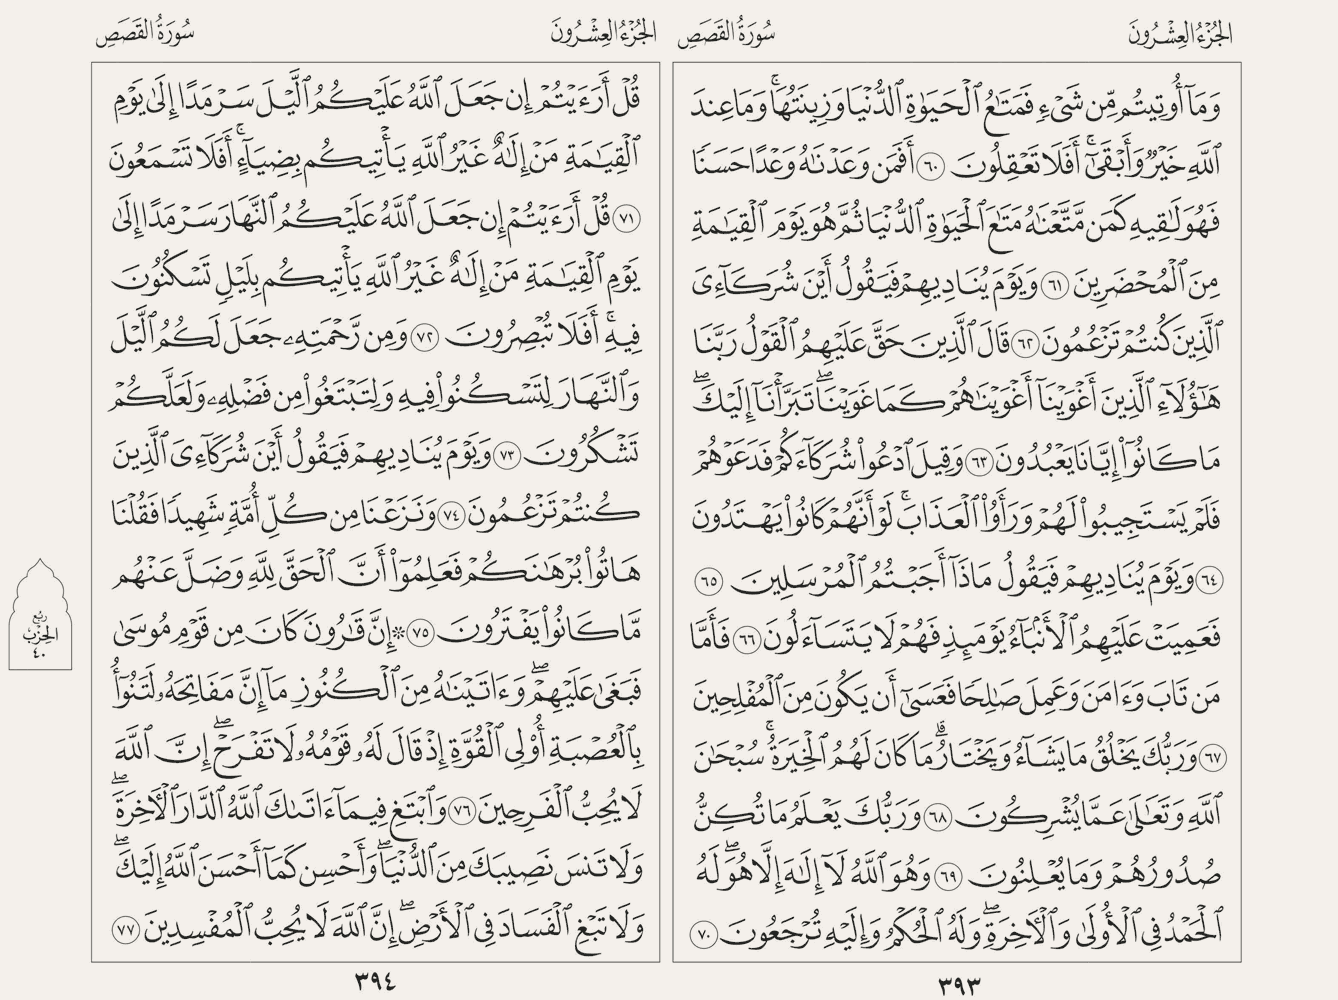 الجُزْءُ العِشْرُونَ
سُورَةُ القَصَصِ
وَمَآ أُوتِيتُم مِّن شَىْءٍ فَمَتَٰعُ ٱلْحَيَوٰةِ ٱلدُّنْيَا وَزِينَتُهَاۚ وَمَا عِندَ
ٱللَّهِ خَيْرٌ وَأَبْقَىٰٓۚ أَفَلَا تَعْقِلُونَ ٦٠ أَفَمَن وَعَدْنَٰهُ وَعْدًا حَسَنًا
فَهُوَ لَٰقِيهِ كَمَن مَّتَّعْنَٰهُ مَتَٰعَ ٱلْحَيَوٰةِ ٱلدُّنْيَا ثُمَّ هُوَ يَوْمَ ٱلْقِيَٰمَةِ
مِنَ ٱلْمُحْضَرِينَ ٦١ وَيَوْمَ يُنَادِيهِمْ فَيَقُولُ أَيْنَ شُرَكَآءِىَ
ٱلَّذِينَ كُنتُمْ تَزْعُمُونَ ٦٢ قَالَ ٱلَّذِينَ حَقَّ عَلَيْهِمُ ٱلْقَوْلُ رَبَّنَا
هَٰٓؤُلَآءِ ٱلَّذِينَ أَغْوَيْنَآ أَغْوَيْنَٰهُمْ كَمَا غَوَيْنَاۖ تَبَرَّأْنَآ إِلَيْكَۖ
مَا كَانُوٓا۟ إِيَّانَا يَعْبُدُونَ ٦٣ وَقِيلَ ٱدْعُوا۟ شُرَكَآءَكُمْ فَدَعَوْهُمْ
فَلَمْ يَسْتَجِيبُوا۟ لَهُمْ وَرَأَوُا۟ ٱلْعَذَابَۚ لَوْ أَنَّهُمْ كَانُوا۟ يَهْتَدُونَ
٦٤ وَيَوْمَ يُنَادِيهِمْ فَيَقُولُ مَاذَآ أَجَبْتُمُ ٱلْمُرْسَلِينَ ٦٥
فَعَمِيَتْ عَلَيْهِمُ ٱلْأَنۢبَآءُ يَوْمَئِذٍ فَهُمْ لَا يَتَسَآءَلُونَ ٦٦ فَأَمَّا
مَن تَابَ وَءَامَنَ وَعَمِلَ صَٰلِحًا فَعَسَىٰٓ أَن يَكُونَ مِنَ ٱلْمُفْلِحِينَ
٦٧ وَرَبُّكَ يَخْلُقُ مَا يَشَآءُ وَيَخْتَارُۗ مَا كَانَ لَهُمُ ٱلْخِيَرَةُۚ سُبْحَٰنَ
ٱللَّهِ وَتَعَٰلَىٰ عَمَّا يُشْرِكُونَ ٦٨ وَرَبُّكَ يَعْلَمُ مَا تُكِنُّ
صُدُورُهُمْ وَمَا يُعْلِنُونَ ٦٩ وَهُوَ ٱللَّهُ لَآ إِلَٰهَ إِلَّا هُوَۖ لَهُ
ٱلْحَمْدُ فِى ٱلْأُولَىٰ وَٱلْءَاخِرَةِۖ وَلَهُ ٱلْحُكْمُ وَإِلَيْهِ تُرْجَعُونَ ٧٠
٣٩٣
الجُزْءُ العِشْرُونَ
سُورَةُ القَصَصِ
قُلْ أَرَءَيْتُمْ إِن جَعَلَ ٱللَّهُ عَلَيْكُمُ ٱلَّيْلَ سَرْمَدًا إِلَىٰ يَوْمِ
ٱلْقِيَٰمَةِ مَنْ إِلَٰهٌ غَيْرُ ٱللَّهِ يَأْتِيكُم بِضِيَآءٍۚ أَفَلَا تَسْمَعُونَ
٧١ قُلْ أَرَءَيْتُمْ إِن جَعَلَ ٱللَّهُ عَلَيْكُمُ ٱلنَّهَارَ سَرْمَدًا إِلَىٰ
يَوْمِ ٱلْقِيَٰمَةِ مَنْ إِلَٰهٌ غَيْرُ ٱللَّهِ يَأْتِيكُم بِلَيْلٍ تَسْكُنُونَ
فِيهِۚ أَفَلَا تُبْصِرُونَ ٧٢ وَمِن رَّحْمَتِهِۦ جَعَلَ لَكُمُ ٱلَّيْلَ
وَٱلنَّهَارَ لِتَسْكُنُوا۟ فِيهِ وَلِتَبْتَغُوا۟ مِن فَضْلِهِۦ وَلَعَلَّكُمْ
تَشْكُرُونَ ٧٣ وَيَوْمَ يُنَادِيهِمْ فَيَقُولُ أَيْنَ شُرَكَآءِىَ ٱلَّذِينَ
كُنتُمْ تَزْعُمُونَ ٧٤ وَنَزَعْنَا مِن كُلِّ أُمَّةٍ شَهِيدًا فَقُلْنَا
هَاتُوا۟ بُرْهَٰنَكُمْ فَعَلِمُوٓا۟ أَنَّ ٱلْحَقَّ لِلَّهِ وَضَلَّ عَنْهُم
مَّا كَانُوا۟ يَفْتَرُونَ ٧٥ ۞ إِنَّ قَٰرُونَ كَانَ مِن قَوْمِ مُوسَىٰ
فَبَغَىٰ عَلَيْهِمْۖ وَءَاتَيْنَٰهُ مِنَ ٱلْكُنُوزِ مَآ إِنَّ مَفَاتِحَهُۥ لَتَنُوٓأُ
بِٱلْعُصْبَةِ أُو۟لِى ٱلْقُوَّةِ إِذْ قَالَ لَهُۥ قَوْمُهُۥ لَا تَفْرَحْۖ إِنَّ ٱللَّهَ
لَا يُحِبُّ ٱلْفَرِحِينَ ٧٦ وَٱبْتَغِ فِيمَآ ءَاتَىٰكَ ٱللَّهُ ٱلدَّارَ ٱلْءَاخِرَةَۖ
وَلَا تَنسَ نَصِيبَكَ مِنَ ٱلدُّنْيَاۖ وَأَحْسِن كَمَآ أَحْسَنَ ٱللَّهُ إِلَيْكَۖ
وَلَا تَبْغِ ٱلْفَسَادَ فِى ٱلْأَرْضِۖ إِنَّ ٱللَّهَ لَا يُحِبُّ ٱلْمُفْسِدِينَ ٧٧
رُبْع
الحِزْب
٤٠
٣٩٤